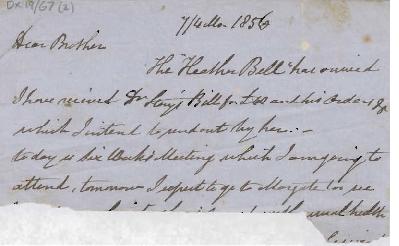 DX 19/67(2)
7/4 Mo. 1856
Dear Brother
The "Heather Bell" has arrived
I have received Dr Bill for and his Orders
which I intend to send out by her. -
today is six Week's Meeting which I am going to
attend, tomorrow I expect to go to Margate to see
with usual health